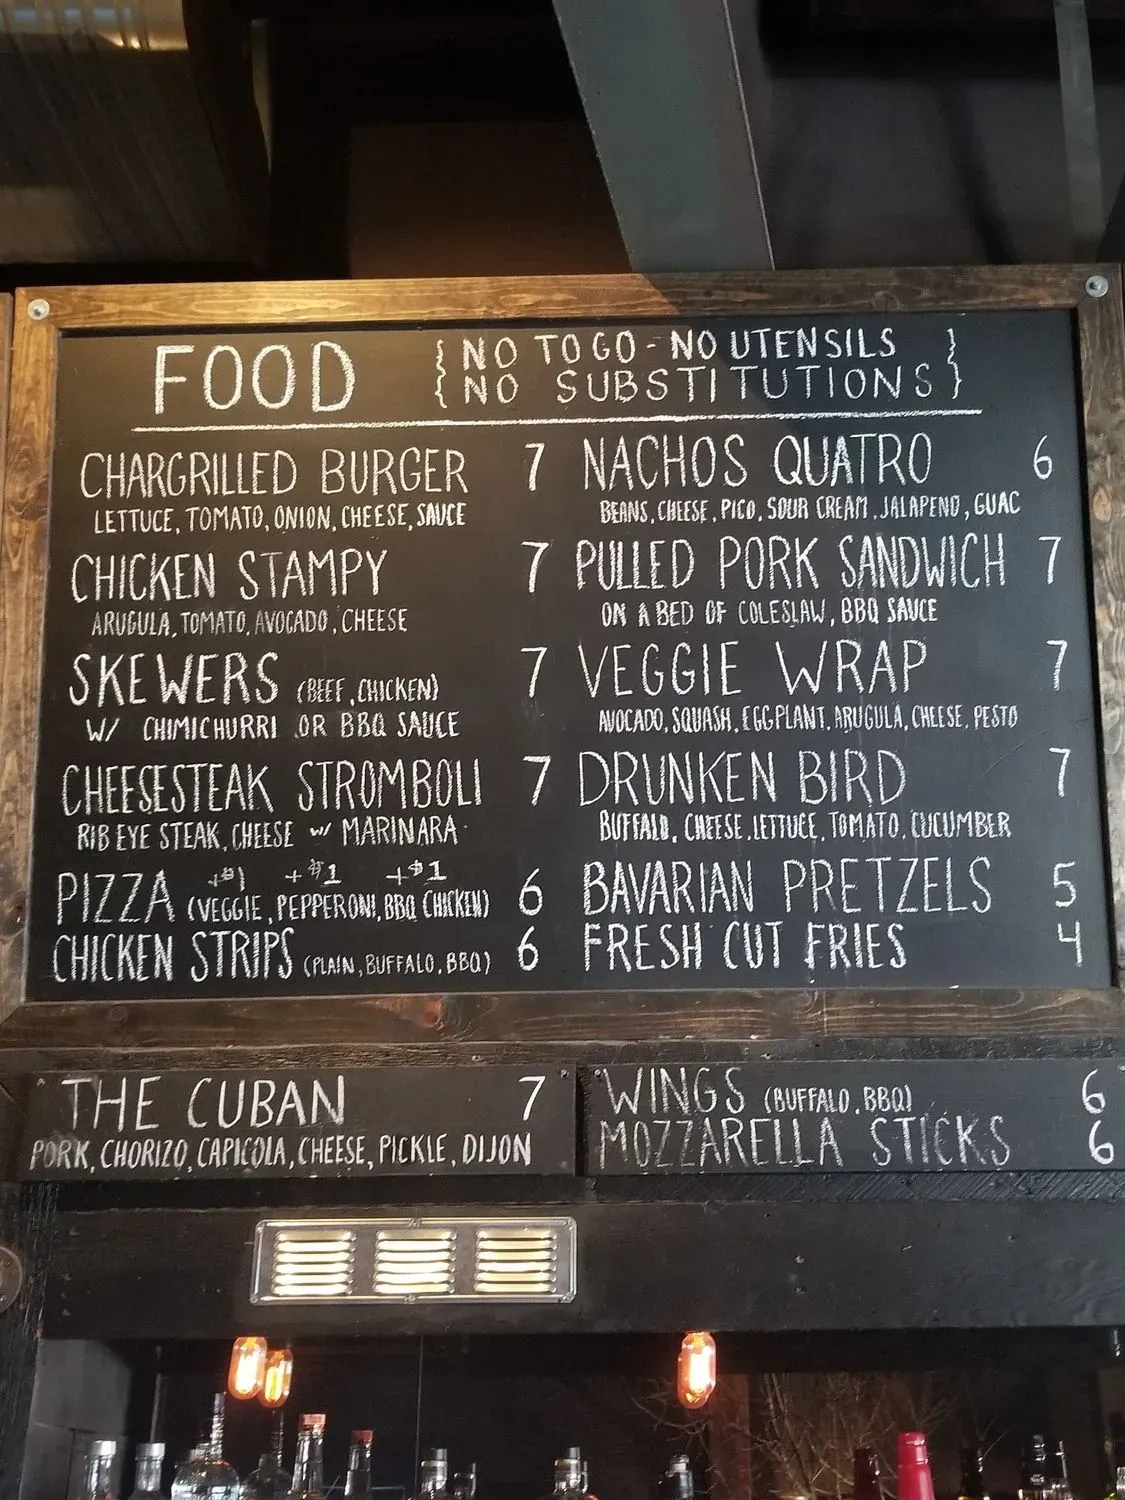 FOOD
{ NO TO GO - NO UTENSILS }
{ NO SUBSTITUTIONS }
CHARGRILLED BURGER 7
LETTUCE, TOMATO, ONION, CHEESE, SAUCE
CHICKEN STAMPY 7
ARUGULA, TOMATO, AVOCADO, CHEESE
SKEWERS (BEEF, CHICKEN) 7
W/ CHIMICHURRI OR BBQ SAUCE
CHEESESTEAK STROMBOLI 7
RIB EYE STEAK, CHEESE w/ MARINARA
+$1 +$1 +$1
PIZZA (VEGGIE, PEPPERONI, BBQ CHICKEN) 6
CHICKEN STRIPS (PLAIN, BUFFALO, BBQ) 6
NACHOS QUATRO 6
BEANS, CHEESE, PICO, SOUR CREAM, JALAPENO, GUAC
PULLED PORK SANDWICH 7
ON A BED OF COLESLAW, BBQ SAUCE
VEGGIE WRAP 7
AVOCADO, SQUASH, EGGPLANT, ARUGULA, CHEESE, PESTO
DRUNKEN BIRD 7
BUFFALO, CHEESE, LETTUCE, TOMATO, CUCUMBER
BAVARIAN PRETZELS 5
FRESH CUT FRIES 4
THE CUBAN 7
PORK, CHORIZO, CAPICOLA, CHEESE, PICKLE, DIJON
WINGS (BUFFALO, BBQ) 6
MOZZARELLA STICKS 6